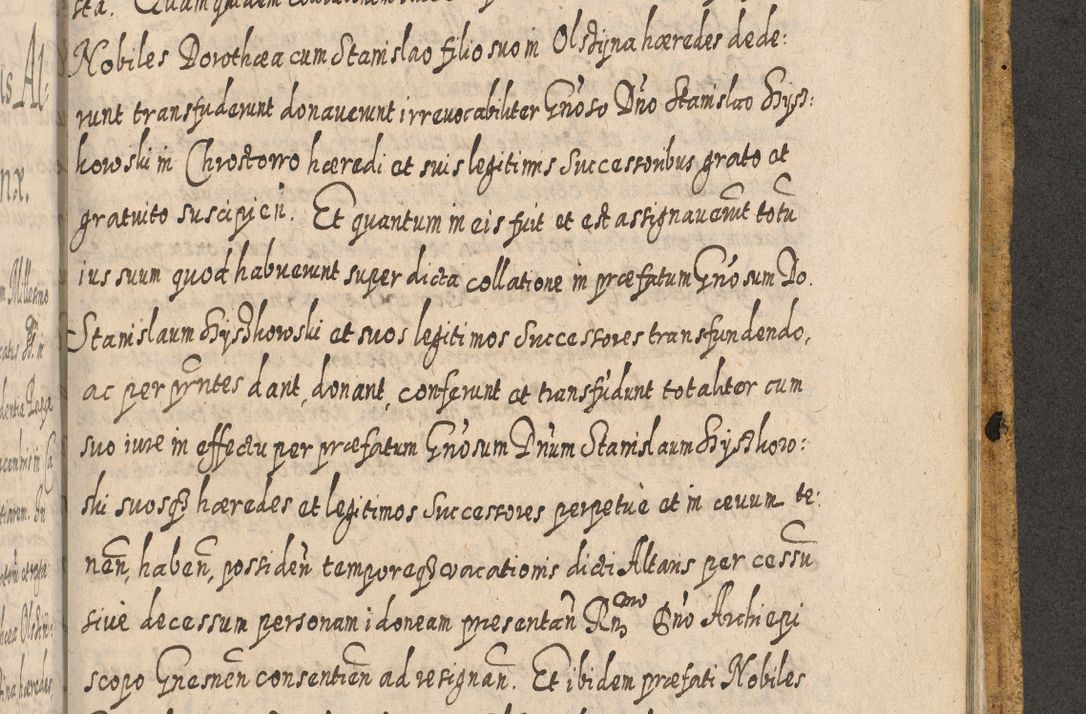 Nobiles Dorothæa cum Stanislao filio suo in Olsztijna hæredes dede:
runt transfuderunt donaverunt irrevocabiliter Gnoso Dño Stanislao
howski in Chrostowo hæredi et suis legitimis Successoribus grato et
gratuito suscipień. Et quantum in eis fuit et est assignaverunt totū
ius suum quod habuerunt super dicta collatione in præfatum Gnosum Do.
Stanislaum et suos legitimos Successores transfundendo,
ac per pñtes dant, donant, conferunt et transfūdunt totaliter cum
suo iure in effectu per præfatum Gnosum Dñum Stanislaum
ski suosq3 hæredes et legitimos Successores perpetuè et in ævum te:
neñ, habeñ, possideñ temporeq3 vacationis dicti Altaris per cessū
sivè decessum personam idoneam presentañ Rmo Dño Archiepi
scopo Gnesneñ consentień ad resignañ. Et ibidem præfati Nobiles